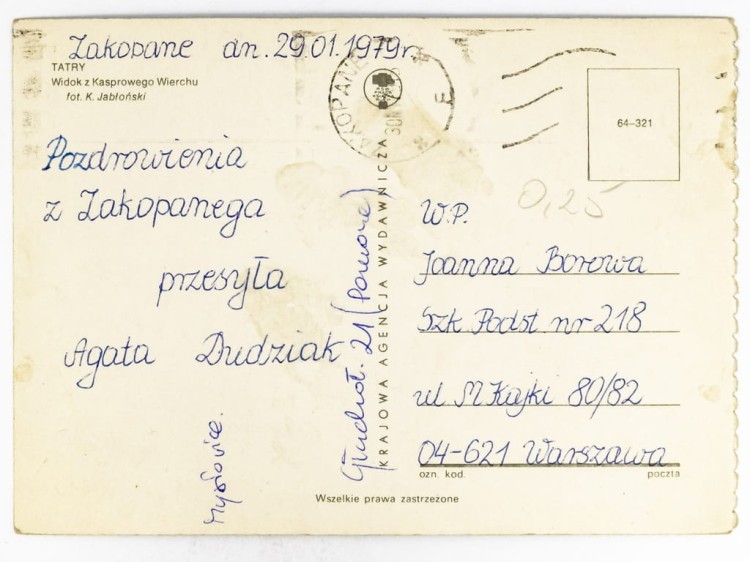 Zakopane dn. 29.01.1979r.
TATRY
Widok z Kasprowego Wierchu
fot. K. Jabłoński
Pozdrowienia
z Zakopanega
przesyła
Agata Dudziak
Mysłowice.
21 (Pomorze)
KRAJOWA AGENCJA WYDAWNICZA
ZAKOPANE
64-321
0,25
W.P.
Joanna Borowa
Szk Podst nr 218
ul M Kajki 80/82
04-621 Warszawa
ozn. kod. poczta
Wszelkie prawa zastrzeżone